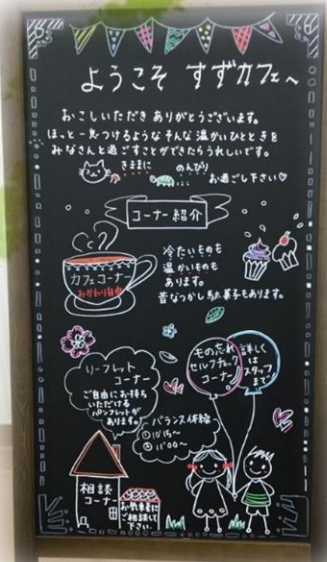 ようこそ すずカフェへ
おこしいただき ありがとうございます。
ほっと一息つけるような そんな 温かいひとときを
みなさんと過ごすことができたらうれしいです。
きままに のんびり
お過ごし下さい♡
コーナー紹介
カフェコーナー
おかわり自由
冷たいものも
温かいものも
あります。
昔なつかし駄菓子もあります。
リーフレット
コーナー
ご自由にお持ち
いただける
パンフレットが
あります。
もの忘れ
セルフチェック
コーナー
詳しく
は
スタッフ
まで
バランス体操
① 10:15~
② 11:00~
相談
コーナー
お気軽に
ご相談して
下さい。